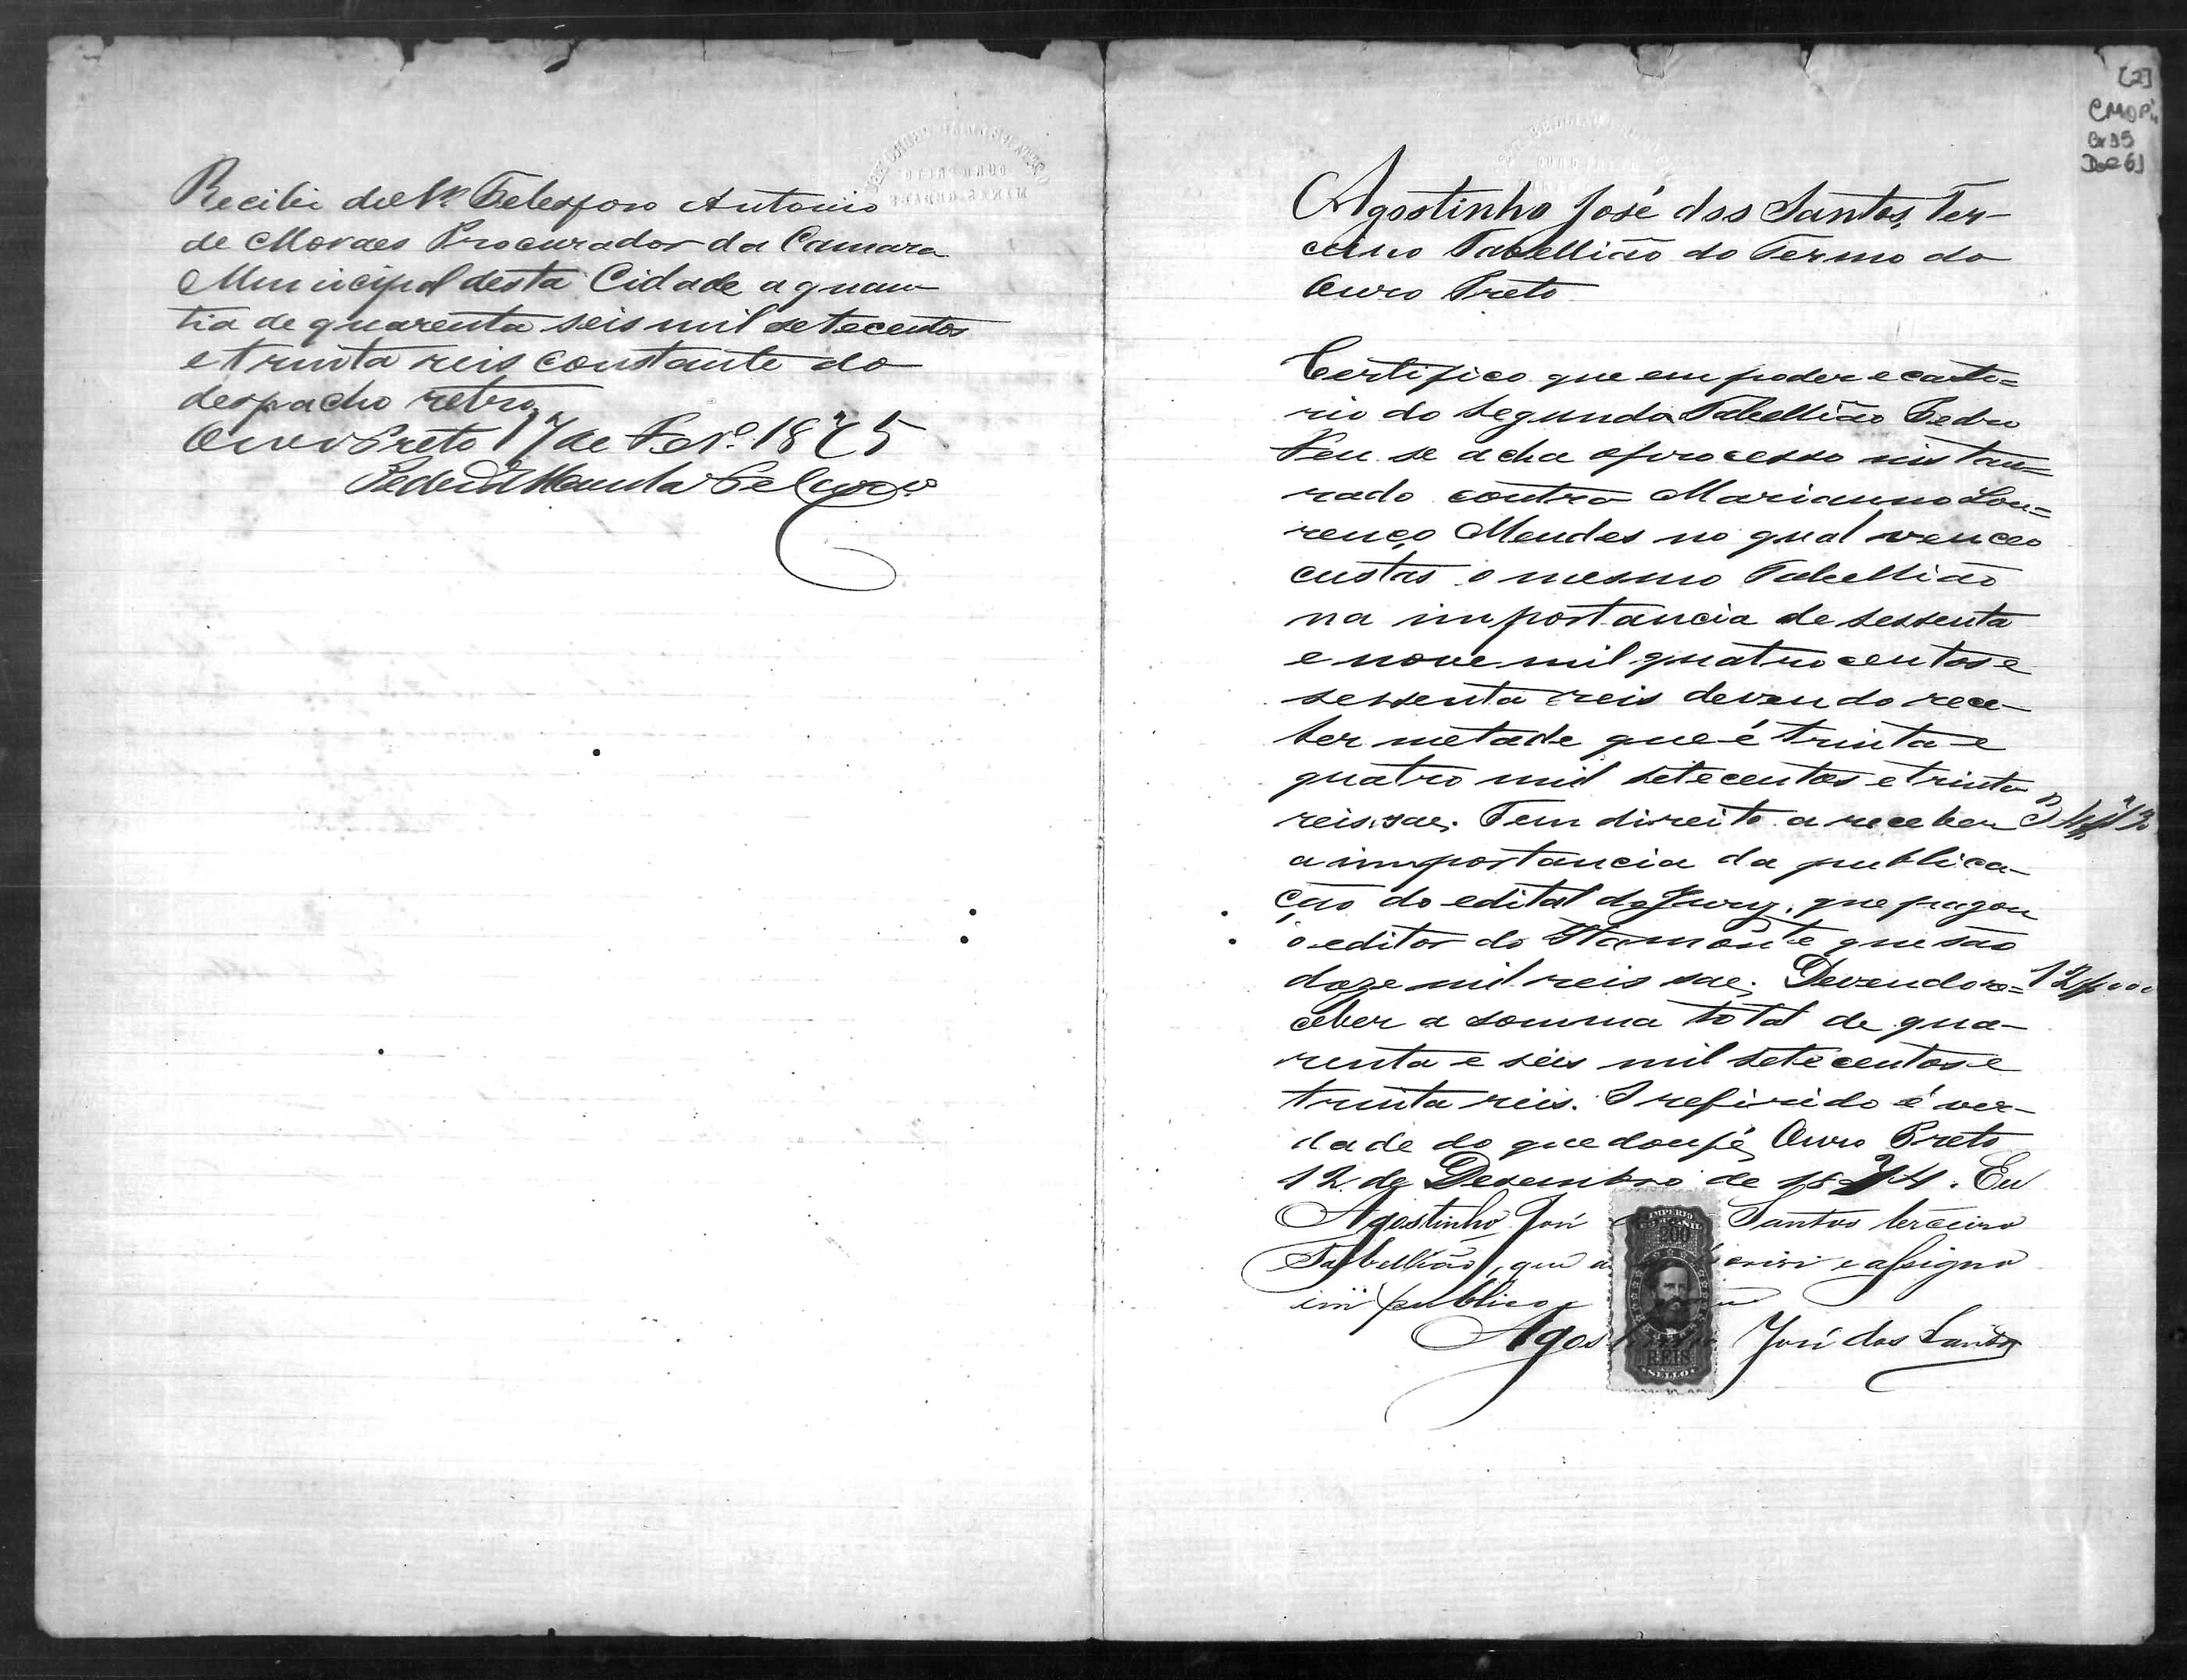 Recibi do Sr. Telesforo Antonio
de Moraes Procurador da Camara
Municipal desta Cidade a quan
tia de quarenta seis mil setecentos
e trinta reis constante do
despacho retro
Ouro Preto 17 de Fevo. 1875
[2]
CMOP
Cx 95
Doc 61
Agostinho José dos Santos, Ter-
ceiro Tabellião do Termo do
Ouro Preto
Certifico que em poder e carto=
rio do Segundo Tabellião Pedro
se acha o processo instau=
rado contra Marianno Lou=
renço Mendes no qual venceo
custas o mesmo Tabellião
na importancia de sessenta
e nove mil quatrocentos e
sessenta reis devendo rece-
ber metade que é trinta e
quatro mil setecentos e trinta
reis sae. Tem direito a receber
a importancia da publica-
ção do edital do Jury, que pagou
o editor do que são
doze mil reis sae. Devendo re= 12$000
ceber a somma total de qua-
renta e seis mil setecentos e
trinta reis. O refirido é ver-
dade do que dou fé, Ouro Preto
12 de Dezembro de 1874. Eu
Agostinho José Santos terceiro
Tabellião, que a e assigno
em publico e
IMPERIO
DO BRASIL
200
REIS
SELLO
Agostinho José dos Santos